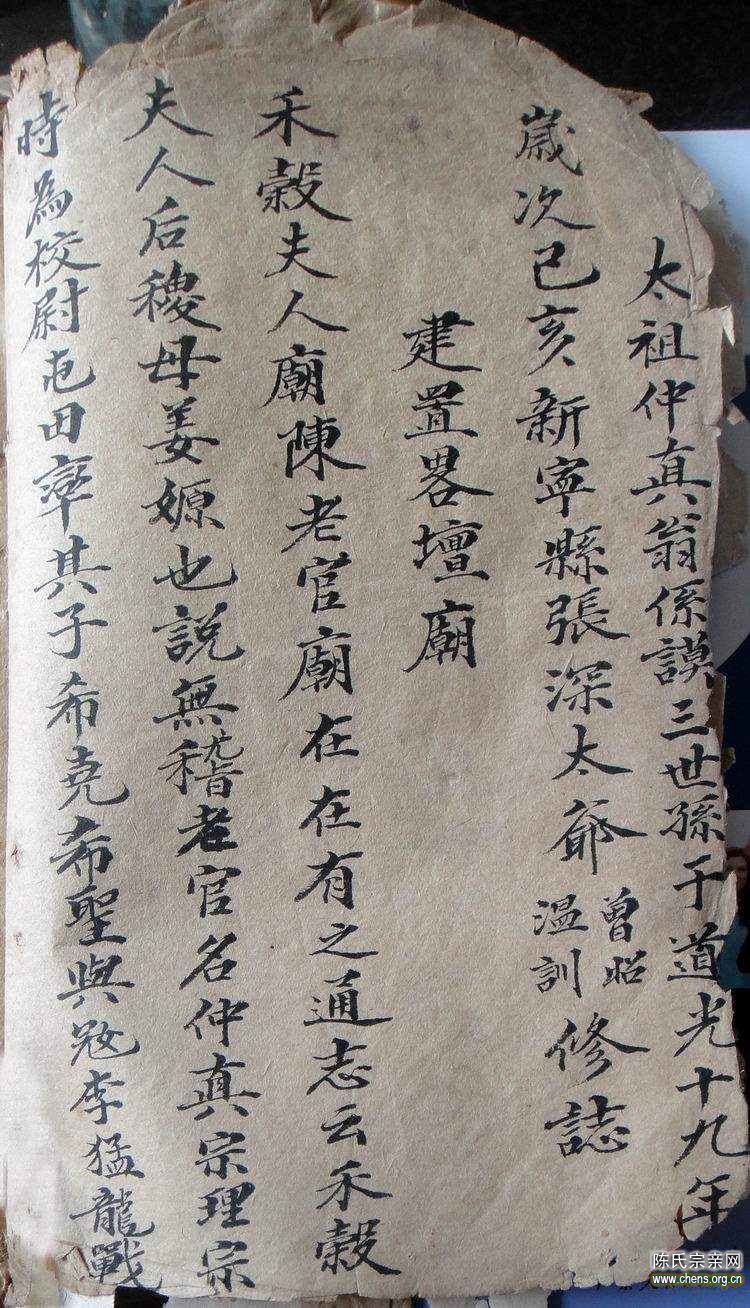 太祖仲真翁係謨三世孫于道光十九年
歲次己亥新寧縣張深太爺曾昭溫訓修誌
建置畧壇廟
禾穀夫人廟陳老官廟在在有之通志云禾穀
夫人后稷母姜嫄也説無稽老官名仲真宗理宗
時為校尉屯田率其子希尭希聖與李猛龍戰
陈氏宗亲网
www.chens.org.cn